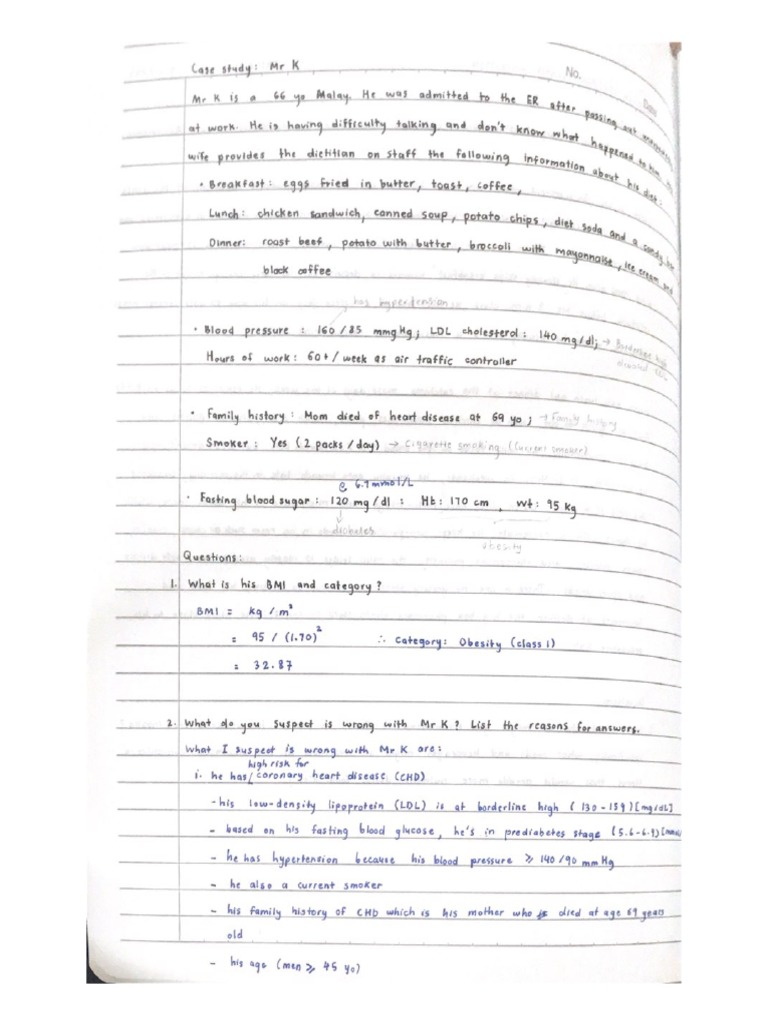 Case study: Mr K
No.
Date
Mr K is a 66 yo Malay. He was admitted to the ER after passing out
at work. He is having difficulty talking and don't know what happened to him.
wife provides the dietitian on staff the following information about his diet:
• Breakfast: eggs fried in butter, toast, coffee,
Lunch: chicken sandwich, canned soup, potato chips, diet soda and a candy bar
Dinner: roast beef, potato with butter, broccoli with mayonnaise, ice cream and
black coffee
has hypertension
• Blood pressure : 160/85 mmHg; LDL cholesterol: 140 mg/dl; → Borderline high
Hours of work: 60+/week as air traffic controller
• Family history: Mom died of heart disease at 69 yo; → Family history
Smoker: Yes (2 packs/day) → Cigarette smoking (current smoker)
@ 6.7 mmol/L
• Fasting blood sugar: 120 mg/dl : Ht: 170 cm, Wt: 95 kg
↓ diabetes
obesity
Questions:
1. What is his BMI and category?
BMI = kg / m²
= 95 / (1.70)² ∴ Category: Obesity (class 1)
= 32.87
2. What do you suspect is wrong with Mr K? List the reasons for answers.
What I suspect is wrong with Mr K are:
high risk for
i. he has/ coronary heart disease (CHD)
- his low-density lipoprotein (LDL) is at borderline high (130-159)[mg/dL]
- based on his fasting blood glucose, he's in prediabetes stage (5.6-6.9)
- he has hypertension because his blood pressure ≥ 140/90 mmHg
- he also a current smoker
- his family history of CHD which is his mother who is died at age 69 years
old
- his age (men ≥ 45 yo)